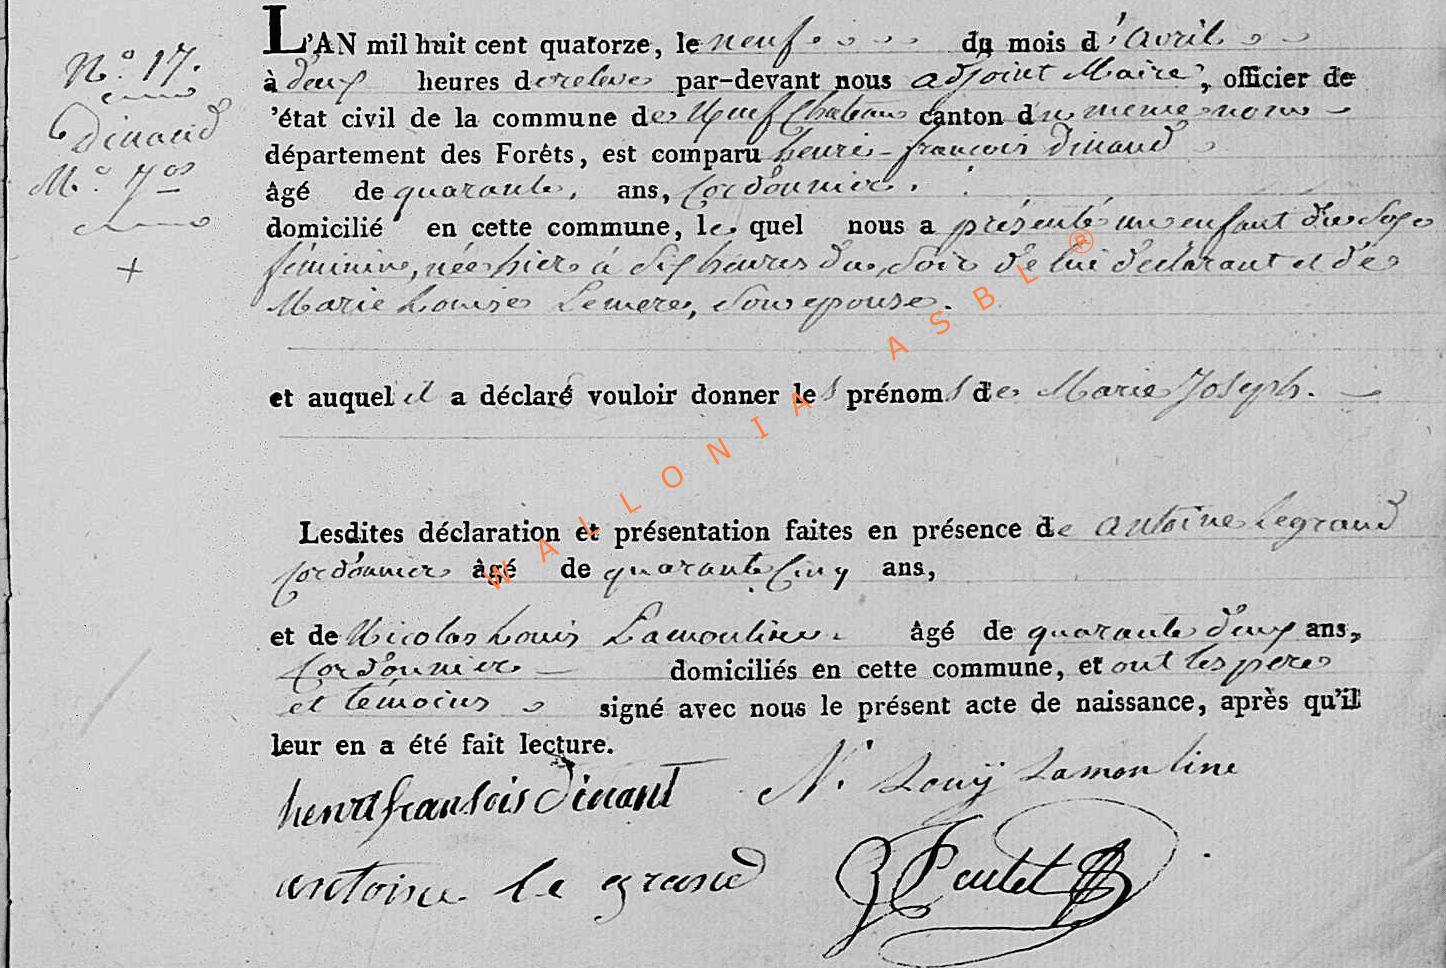 L'AN mil huit cent quatorze, le neuf du mois d'avril
N.° 17.
à deux heures de relevé par-devant nous adjoint Maire, officier de
Dinand
'état civil de la commune de Neufchateau canton du meme nom
M.e J.os
département des Forêts, est comparu henri-francois Dinand
âgé de quarante, ans, Cordonnier.
domicilié en cette commune, le quel nous a présenté un enfant du Sexe
féminin, née hier à Six heures du Soir de lui déclarant et de
Marie Louise Lemere, Son epouse.
et auquel il a déclaré vouloir donner les prénoms de Marie Joseph.
Lesdites déclaration et présentation faites en présence de antoine Legrand
Cordonnier âgé de quarante Cinq ans,
et de Nicolas Louis Lamouline âgé de quarante deux ans,
Cordonnier domiciliés en cette commune, et ont les pere
et témoins signé avec nous le présent acte de naissance, après qu'il
leur en a été fait lecture.
henri fransois Dinant N. Louÿ Lamouline
antoine le grand
WALLONIA ASBL ®